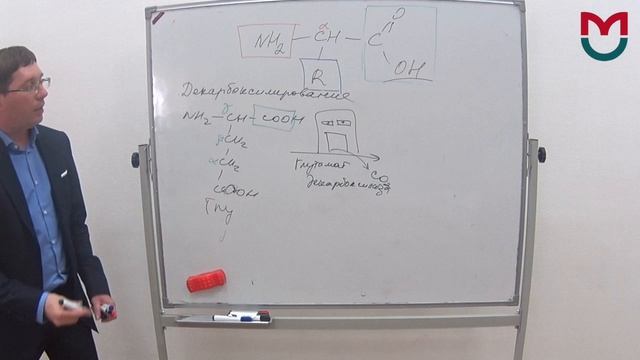 NH₂ — CH — C
α
O
OH
R
Декарбоксилирование
NH₂ — CH — COOH
γ
βCH₂
αCH₂
COOH
Глу
Глутамат
Декарбоксилаза
CO₂